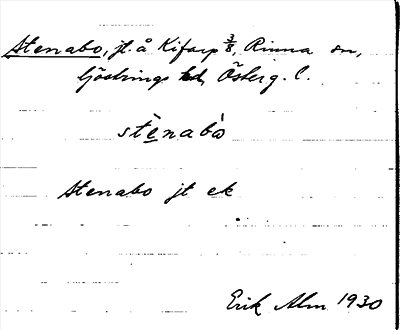 Stenabo, jt. å Kifarp 3/8, Rinna sn,
Göstrings hd, Österg. l.
stènabò
Stenabo jt ek
Erik Alm 1930